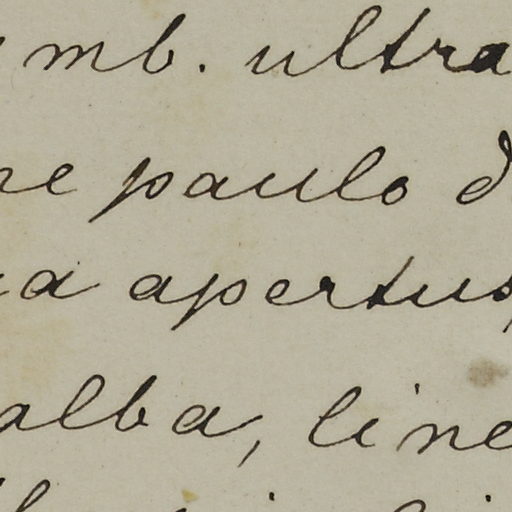 mb. ultra
paulo
apertus,
alba, line